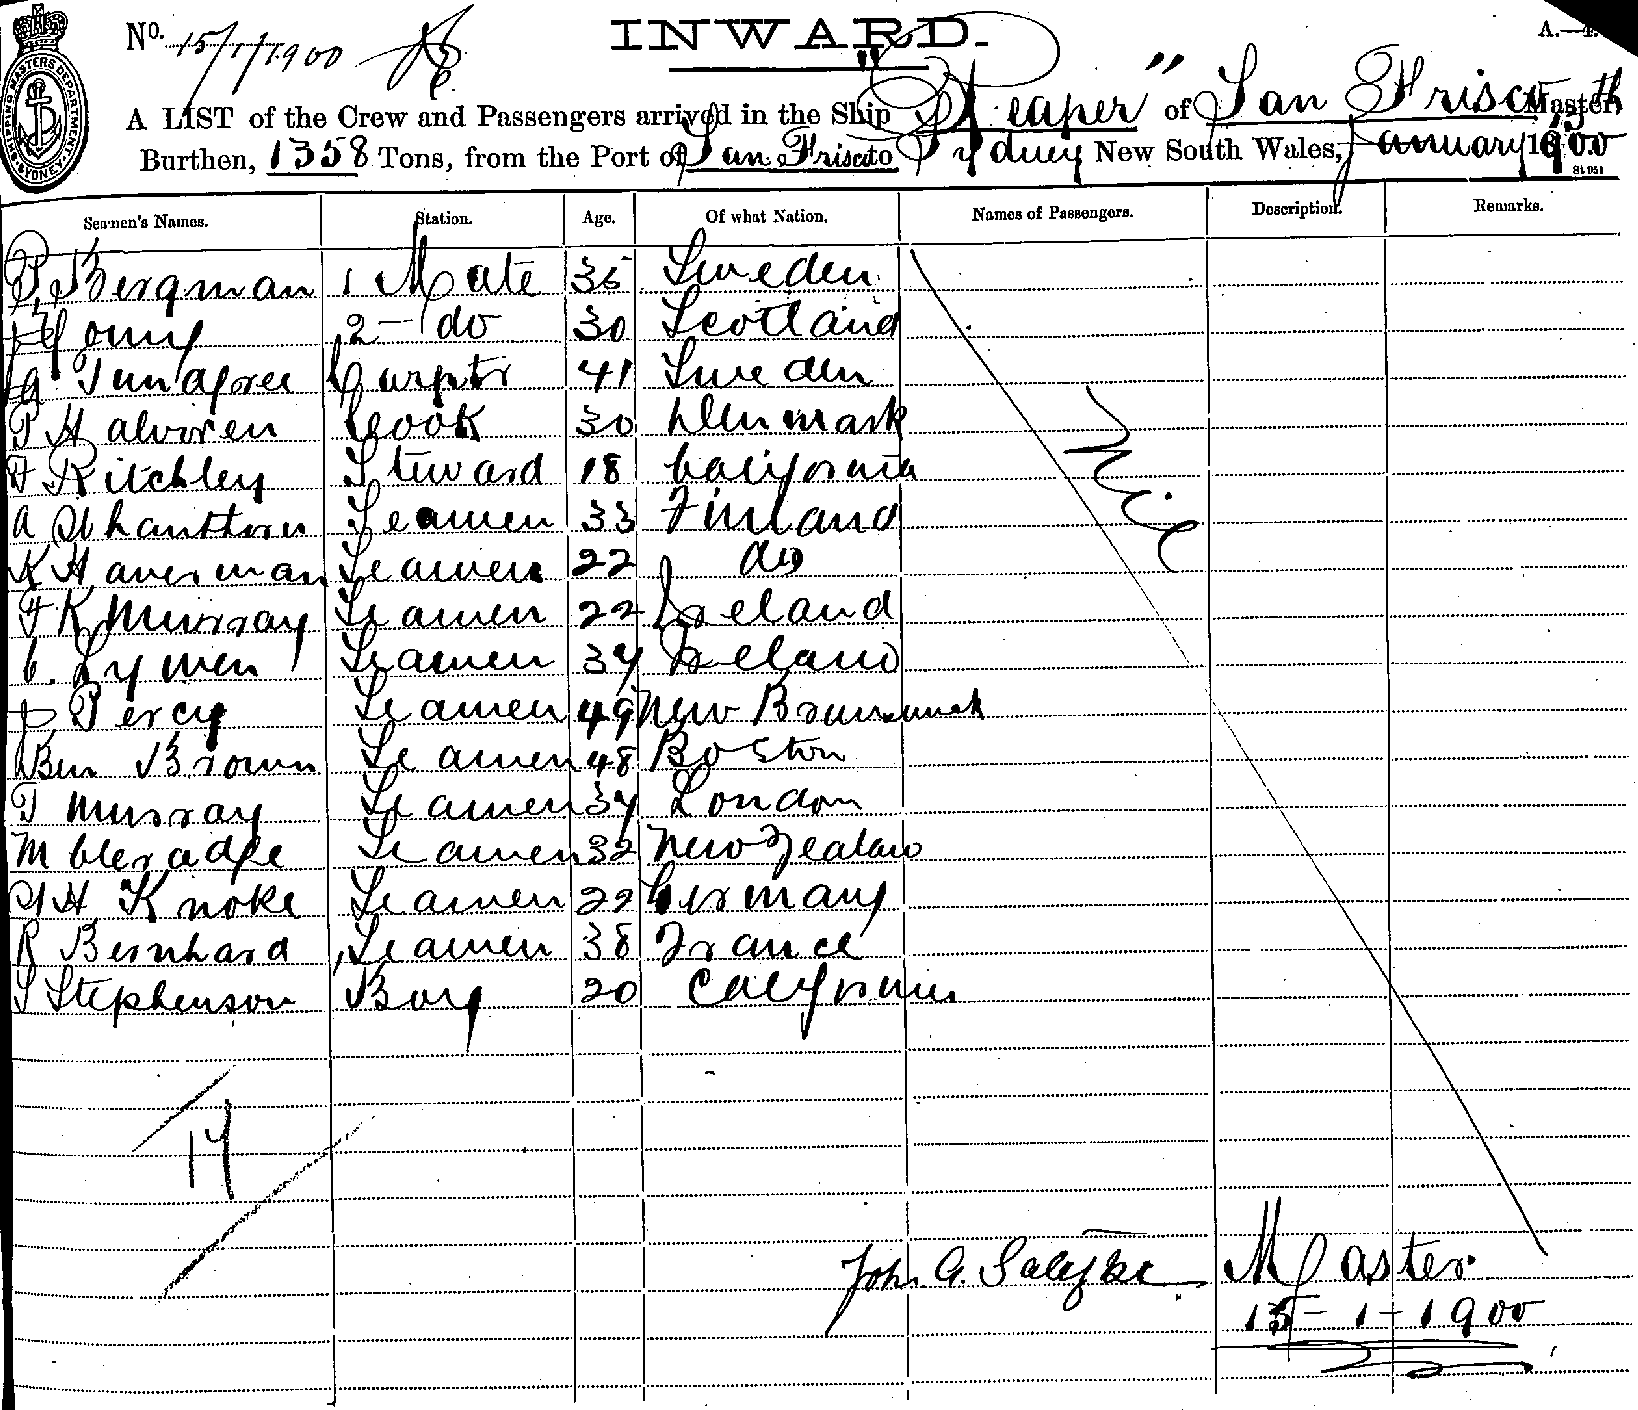 No. 15/1/1900
INWARD.
A.—4.
A LIST of the Crew and Passengers arrived in the Ship "Reaper" of San Frisco Master,
Burthen, 1358 Tons, from the Port of San Frisco to Sydney New South Wales, 15th January 1900
SHIPPING MASTERS DEPARTMENT SYDNEY
Seamen's Names. Station. Age. Of what Nation. Names of Passengers. Description. Remarks.
P. Bergman 1 Mate 35 Sweden
2 - do 30 Scotland
Carptr 41 Sweden
Cook 30 Denmark
F Ritchley Steward 18 California
Seamen 33 Finland
K Haverman Seamen 22 do
F K Murray Seamen 22 Ireland
C. Lymen Seamen 34 Ireland
J Percy Seamen 49 New Brunswick
Ben Brown Seamen 48 Boston
T Murray Seamen 34 London
M Seamen 32 New Zealand
H Knoke Seamen 22 Germany
R Bernhard Seamen 38 France
S Stephenson Boy 20 California
Nil
17
John G. Master
15-1-1900